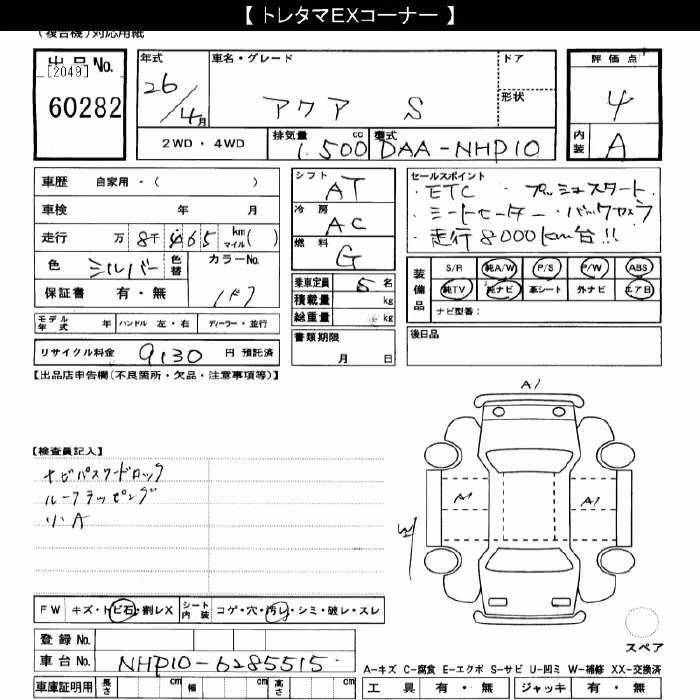 【 トレタマEXコーナー 】
(複合機)対応用紙
出品No.
[2049]
60282
年式 26/4月
車名・グレード アクア S
ドア
形状
評価点 4
内装 A
2WD・4WD
排気量 1,500 cc
型式 DAA-NHP10
車歴 自家用・( )
車検 年 月
走行 万 8千 465 km マイル( )
色 シルバー 色替 カラーNo. 1F7
保証書 有・無
シフト AT
冷房 AC
燃料 G
セールスポイント
・ETC ・プッシュスタート
・シートヒーター・バックカメラ
・走行8000km台!!
乗車定員 5 名
積載量 kg
総重量 kg
装備品 S/R 純A/W P/S P/W ABS
純TV 純ナビ 革シート 外ナビ エアB
ナビ型番:
モデル年式 年 ハンドル 左・右 ディーラー・並行
リサイクル料金 9,130 円 預託済
書類期限 月 日
後日品
【出品店申告欄(不良箇所・欠品・注意事項等)】
【検査員記入】
ナビパスワードロック
ルーフラッピング
小A
A1
A1
A1
FW キズ・トビ石・割レX シート内装 コゲ・穴・汚レ・シミ・破レ・スレ
登録No.
車台No. NHP10-6285515
スペア
A-キズ C-腐食 E-エクボ S-サビ U-凹ミ W-補修 XX-交換済
車庫証明用 長さ cm 幅 cm 高さ cm
工具 有・無 ジャッキ 有・無